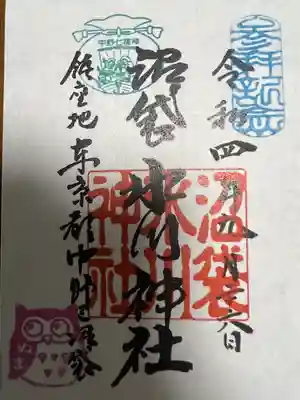 令和四年四月
沼袋氷川神社
鎮座地 東京都中野区沼袋
沼袋
氷川
神社
ぬま